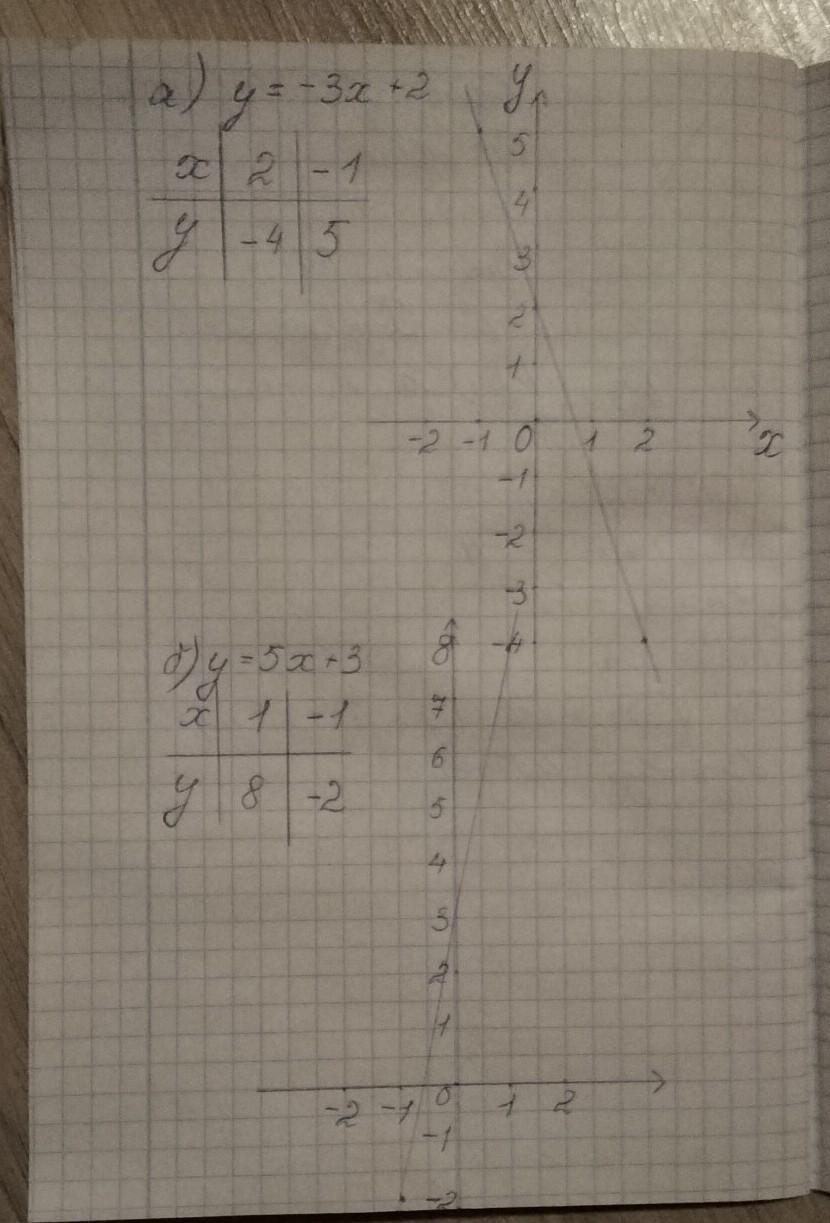 а) y = -3x + 2
x | 2 | -1
y | -4 | 5
y
5
4
3
2
1
-2 -1 0 1 2 x
-1
-2
-3
-4
б) y = 5x + 3
x | 1 | -1
y | 8 | -2
8
7
6
5
4
3
2
1
-2 -1 0 1 2
-1
-2